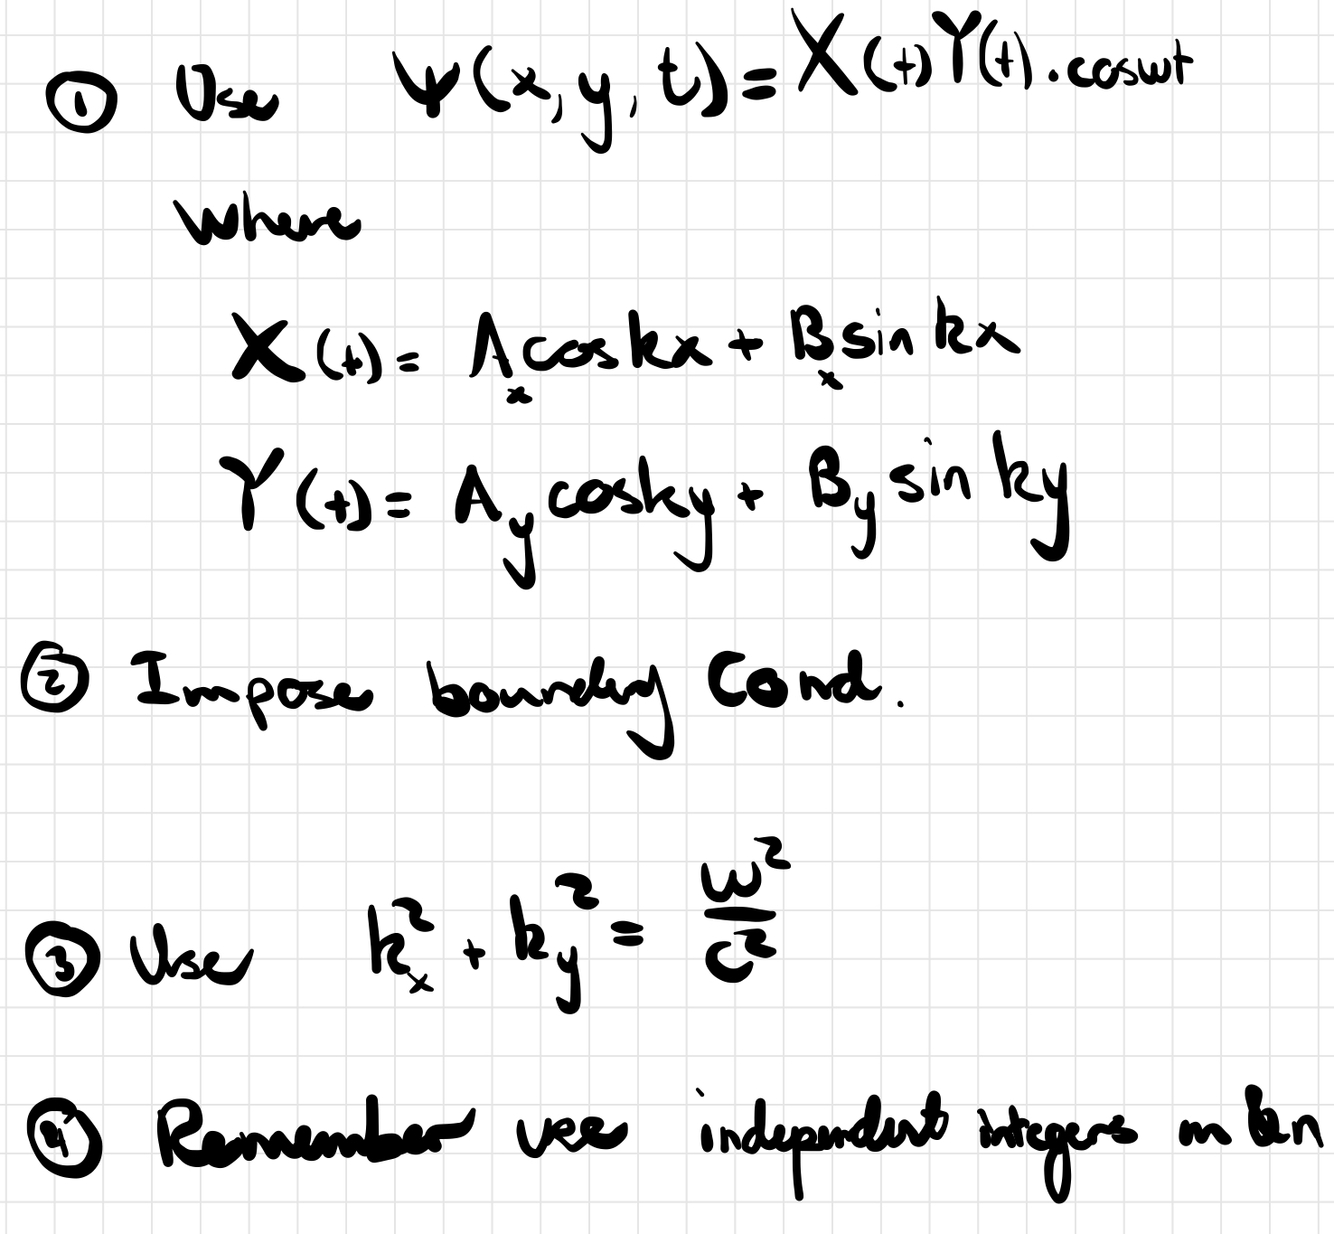 ① Use Ψ(x, y, t) = X(t)Y(t).coswt
Where
X(t) = A_x coskx + B_x sin kx
Y(t) = A_y cosky + B_y sin ky
② Impose boundary Cond.
③ Use k_x^2 + k_y^2 = ω^2/c^2
④ Remember use independent integers m &n